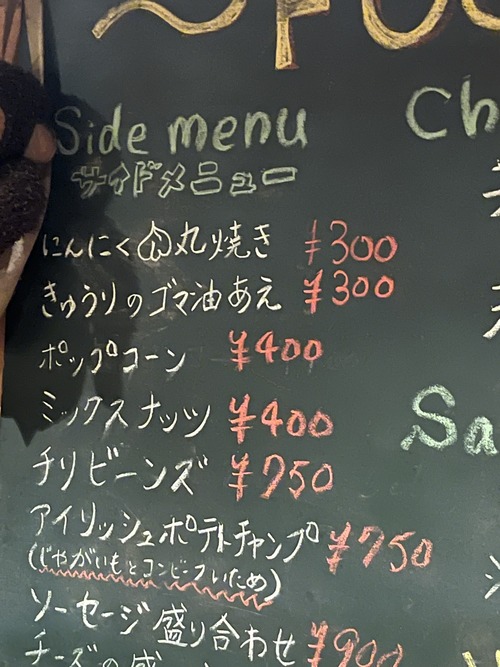 FOO
Side menu
サイドメニュー
にんにく丸焼き ¥300
きゅうりのゴマ油あえ ¥300
ポップコーン ¥400
ミックスナッツ ¥400
チリビーンズ ¥750
アイリッシュポテトチャンプ ¥750
(じゃがいもとコンビーフいため)
ソーセージ盛り合わせ ¥900
チーズの盛
Ch
Sa